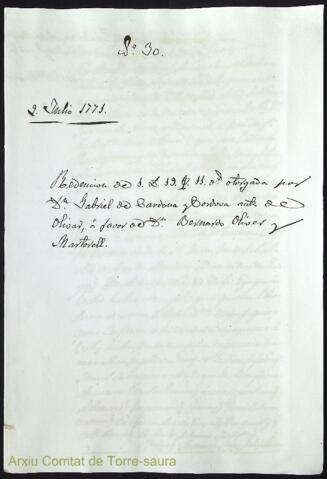 Nº 30.
2. Julio 1771.
Redencion de 1. L 19. ß 11. ds. otorgada por
Dn. Gabriel de Cardona y Cordova ante de
Olivar, á favor de Dn. Bernardo Oliver y
Martorell.
Arxiu Comtat de Torre-saura